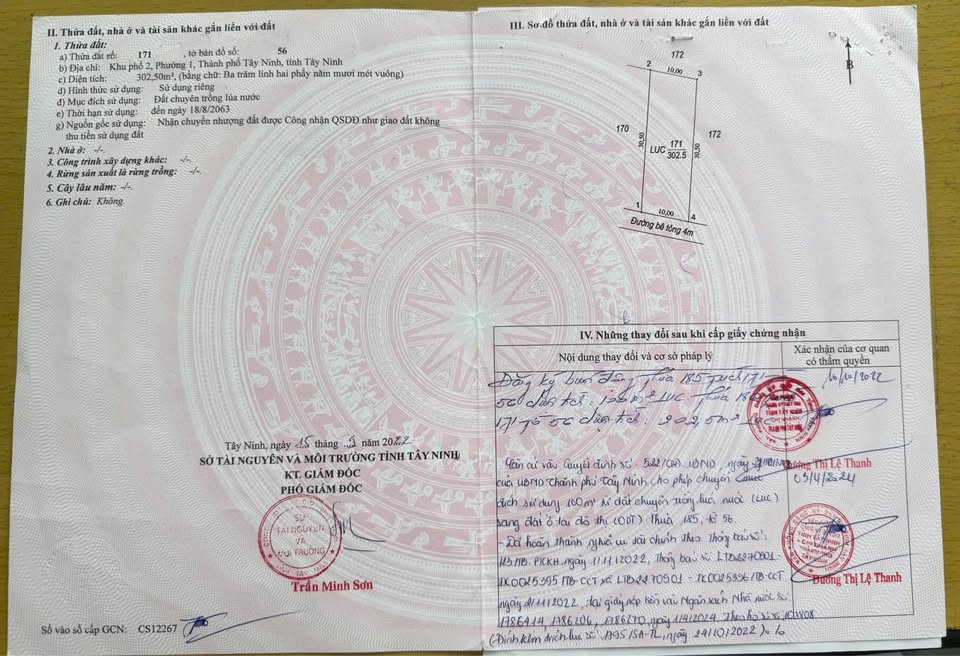 II. Thửa đất, nhà ở và tài sản khác gắn liền với đất
1. Thửa đất:
a) Thửa đất số: 171 , tờ bản đồ số: 56
b) Địa chỉ: Khu phố 2, Phường 1, Thành phố Tây Ninh, tỉnh Tây Ninh
c) Diện tích: 302,50m², (bằng chữ: Ba trăm linh hai phẩy năm mươi mét vuông)
d) Hình thức sử dụng: Sử dụng riêng
đ) Mục đích sử dụng: Đất chuyên trồng lúa nước
e) Thời hạn sử dụng: đến ngày 18/8/2063
g) Nguồn gốc sử dụng: Nhận chuyển nhượng đất được Công nhận QSDĐ như giao đất không
thu tiền sử dụng đất
2. Nhà ở: -/-
3. Công trình xây dựng khác: -/-
4. Rừng sản xuất là rừng trồng: -/-
5. Cây lâu năm: -/-
6. Ghi chú: Không.
Tây Ninh, ngày 15 tháng 9 năm 2022
SỞ TÀI NGUYÊN VÀ MÔI TRƯỜNG TỈNH TÂY NINH
KT. GIÁM ĐỐC
PHÓ GIÁM ĐỐC
SỞ
TÀI NGUYÊN
VÀ
MÔI TRƯỜNG
Trần Minh Sơn
Số vào sổ cấp GCN: CS12267
III. Sơ đồ thửa đất, nhà ở và tài sản khác gắn liền với đất
B
172
2 10,00 3
170 30,50 LUC 171 302.5 30,50 172
1 10,00 4
Đường bê tông 4m
IV. Những thay đổi sau khi cấp giấy chứng nhận
Nội dung thay đổi và cơ sở pháp lý
Xác nhận của cơ quan
có thẩm quyền
Đăng ký biến động Thửa 185
56 diện tích: LUC Thửa
171 tờ 56 diện tích: 202,5m² LUC
Dương Thị Lệ Thanh
Căn cứ vào Quyết định số: UBND, ngày
của UBND Thành phố Tây Ninh cho phép chuyển mục
đích sử dụng 100m² từ đất chuyên trồng lúa nước (LUC)
sang đất ở tại đô thị (ODT) Thửa 185, tờ 56
- Đã hoàn thành nghĩa vụ tài chính theo Thông báo số:
ngày 11/11/2022, Thông báo số LTB2270901-
TK0025395/TB-CCT và LTB2270901-TK0025396/TB-CCT
ngày 21/11/2022, tại giấy nộp tiền vào Ngân sách Nhà nước số
1786206, ngày 1/4/2024. Theo hồ sơ số
(Đính kèm số ngày 24/10/2022)
03/4/2024
Dương Thị Lệ Thanh